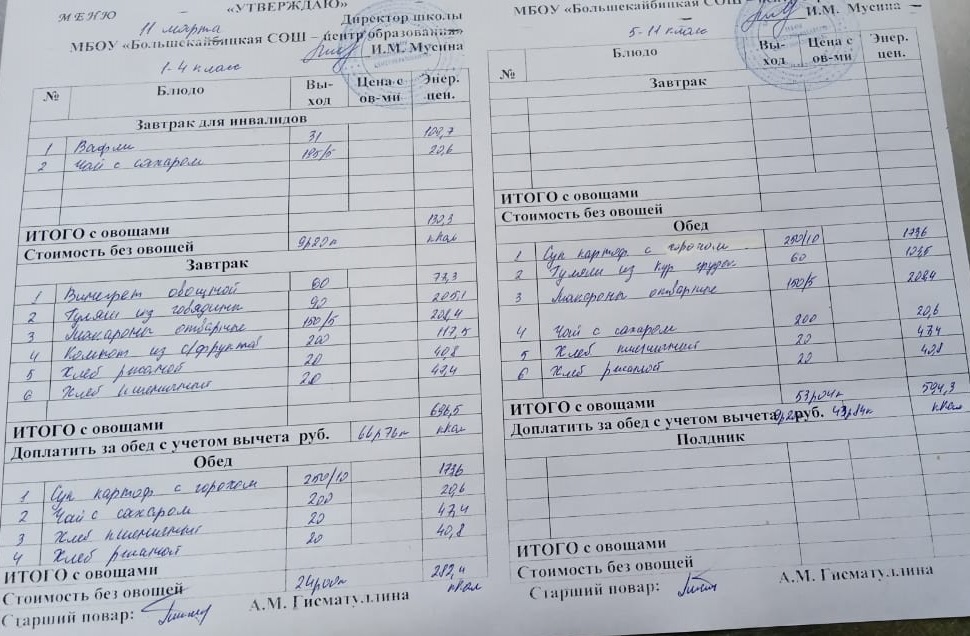 МЕНЮ
«УТВЕРЖДАЮ»
11 марта
Директор школы
МБОУ «Большекайбицкая СОШ – центр образования»
И.М. Мусина
1-4 класс
№ Блюдо Вы-ход Цена с ов-ми Энер. цен.
Завтрак для инвалидов
1 Вафли 31 109,7
2 Чай с сахаром 195/5 20,6
ИТОГО с овощами 130,3
Стоимость без овощей 9р20к ккал
Завтрак
1 Винегрет овощной 60 73,3
2 Гуляш из говядины 90 205,1
3 Макароны отварные 150/5 208,4
4 Компот из с/фруктов 200 117,5
5 Хлеб ржаной 20 40,8
6 Хлеб пшеничный 20 47,4
ИТОГО с овощами 696,5
Доплатить за обед с учетом вычета руб. 66р76к ккал
Обед
1 Суп картоф с горохом 250/10 173,6
2 Чай с сахаром 200 20,6
3 Хлеб пшеничный 20 47,4
4 Хлеб ржаной 20 40,8
ИТОГО с овощами 282,4
Стоимость без овощей 24р00к ккал
Старший повар: А.М. Гисматуллина
МБОУ «Большекайбицкая СОШ – центр
И.М. Мусина
5-11 класс
№ Блюдо Вы-ход Цена с ов-ми Энер. цен.
Завтрак
ИТОГО с овощами
Стоимость без овощей
Обед
1 Суп картоф с горохом 250/10 173,6
2 Гуляш из кур грудок 60
3 Макароны отварные 150/5 208,4
4 Чай с сахаром 200 20,6
5 Хлеб пшеничный 20 47,4
6 Хлеб ржаной 20 40,8
ИТОГО с овощами 53р04к 594,3
Доплатить за обед с учетом вычета 9р20к руб. 43р84к ккал
Полдник
ИТОГО с овощами
Стоимость без овощей
Старший повар: А.М. Гисматуллина